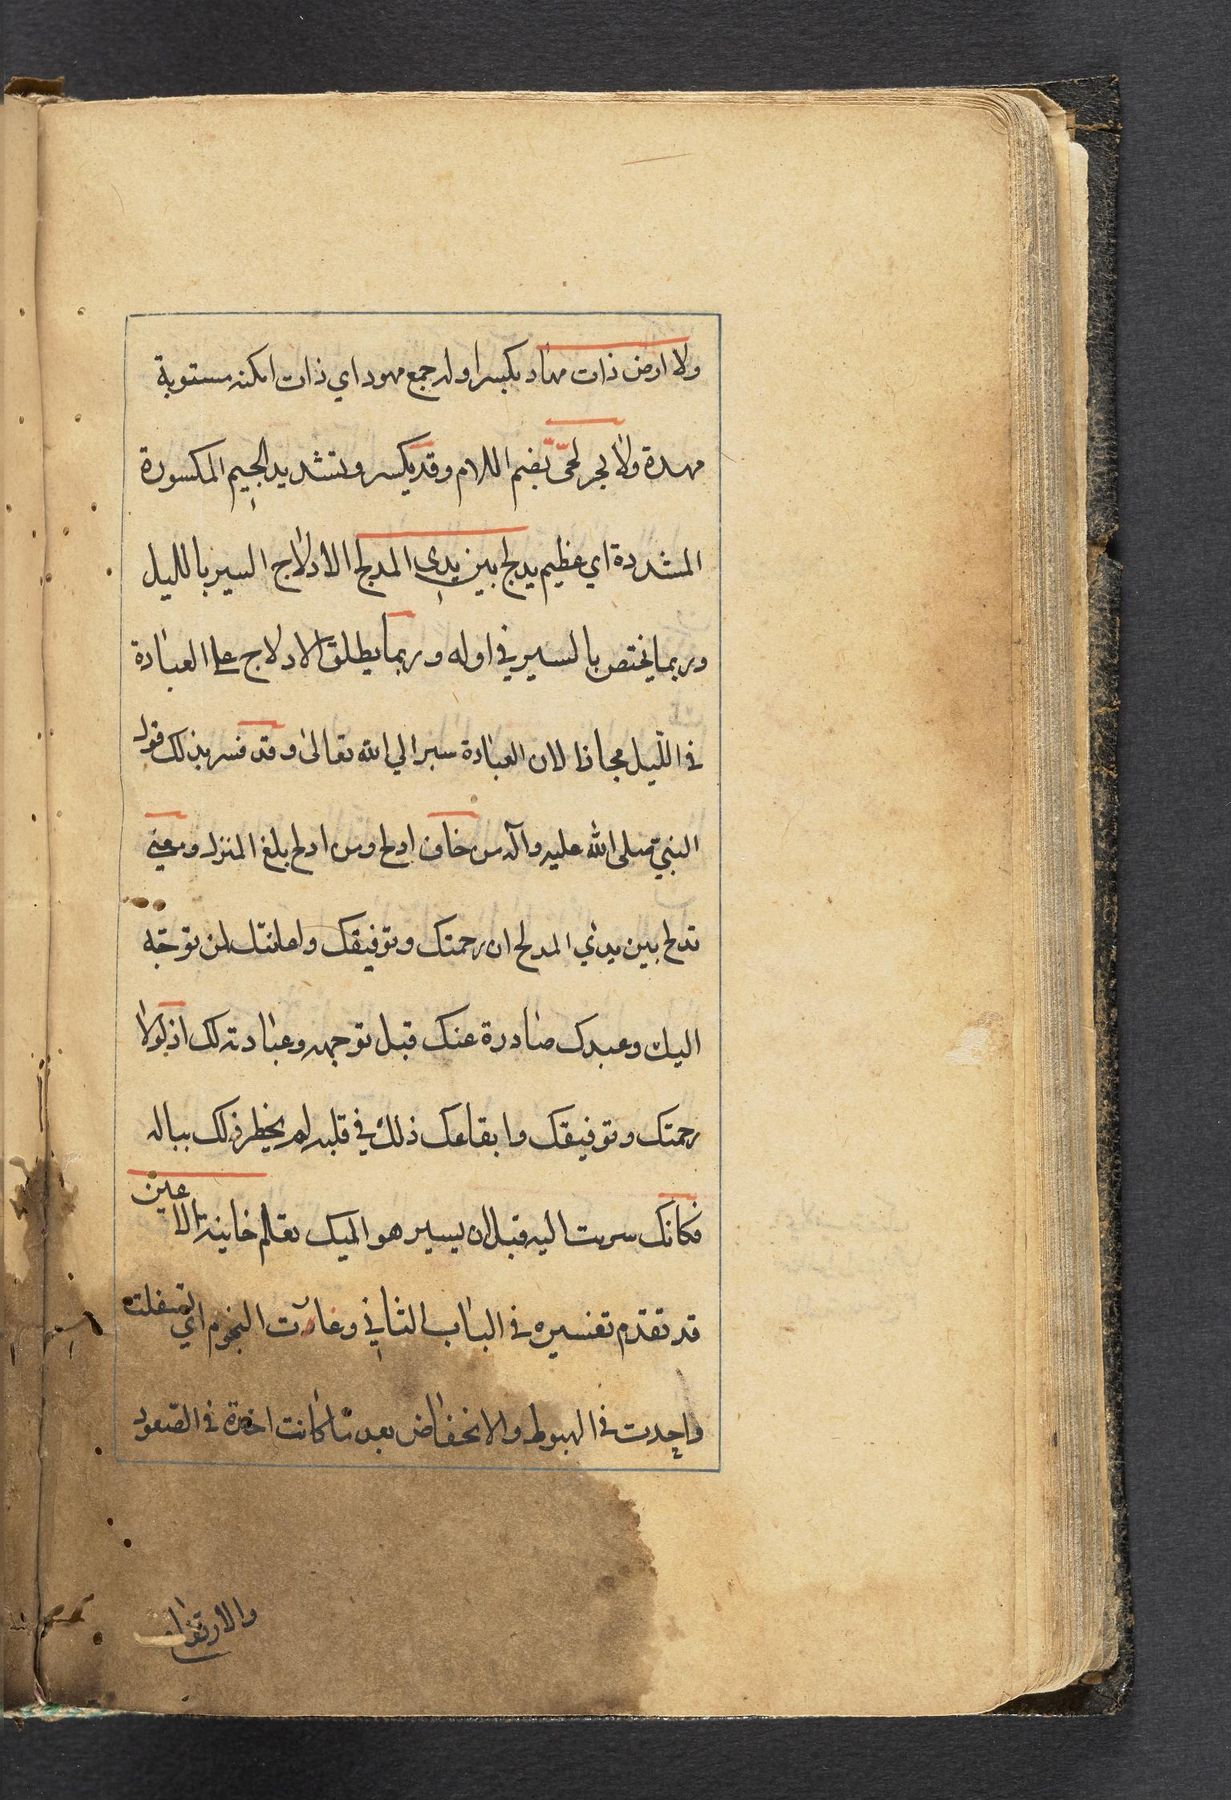 ولا ارض ذات مهاد بكسر اوله جمع مهود اي ذات امكنه مستوية
مهدة ولا بحر لجّيّ بضم اللام وقد يكسر وتشديد الجيم المكسورة
المشددة اي عظيم يدلج بين يدي المدلج الادلاج السير بالليل
وربما يختص بالسير في اوله وربما يطلق الادلاج علي العبادة
في اللّيل مجازا لان العبادة سير الي الله تعالى وقد فسر بذلك قول
النبي صلى الله عليه وآله من خاف ادلج ومن ادلج بلغ المنزل ومعني
تدلج بين يدي المدلج ان رحمتك وتوفيقك واعانتك لمن توجّه
اليك وعبدك صادرة عنك قبل توجهه وعبادته لك اذ لولا
رحمتك وتوفيقك وايقاعك ذلك في قلبه لم يخطر ذلك بباله
فكانك سريت اليه قبل ان يسير هو اليك تعلم خاينة الاعين
قد تقدّم تفسيره في الباب الثاني وغارت النجوم اي تسفلت
واخذت في الهبوط والانخفاض بعد ما كانت اخذة في الصّعود
والارتفاع